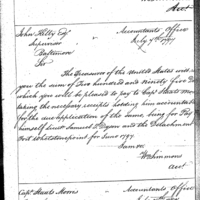 Acct
John Kilty Esq
Supervisor
Baltimore
Accountants Office
July 7th 1797
Sir
The Treasurer of the United States will
you the sum of Two hundred and Ninety five Do
which you will be pleased to pay to Capt Staats Mor
taking the necessary receipts holding him accountable
for the due application of the same, being for Pay
himself Lieut Samuel T. Dyson and the Detachment
Fort Whetstone point for June 1797.
I am &c
W Simmons
Acct
Capt Staats Morris
Accountants Office